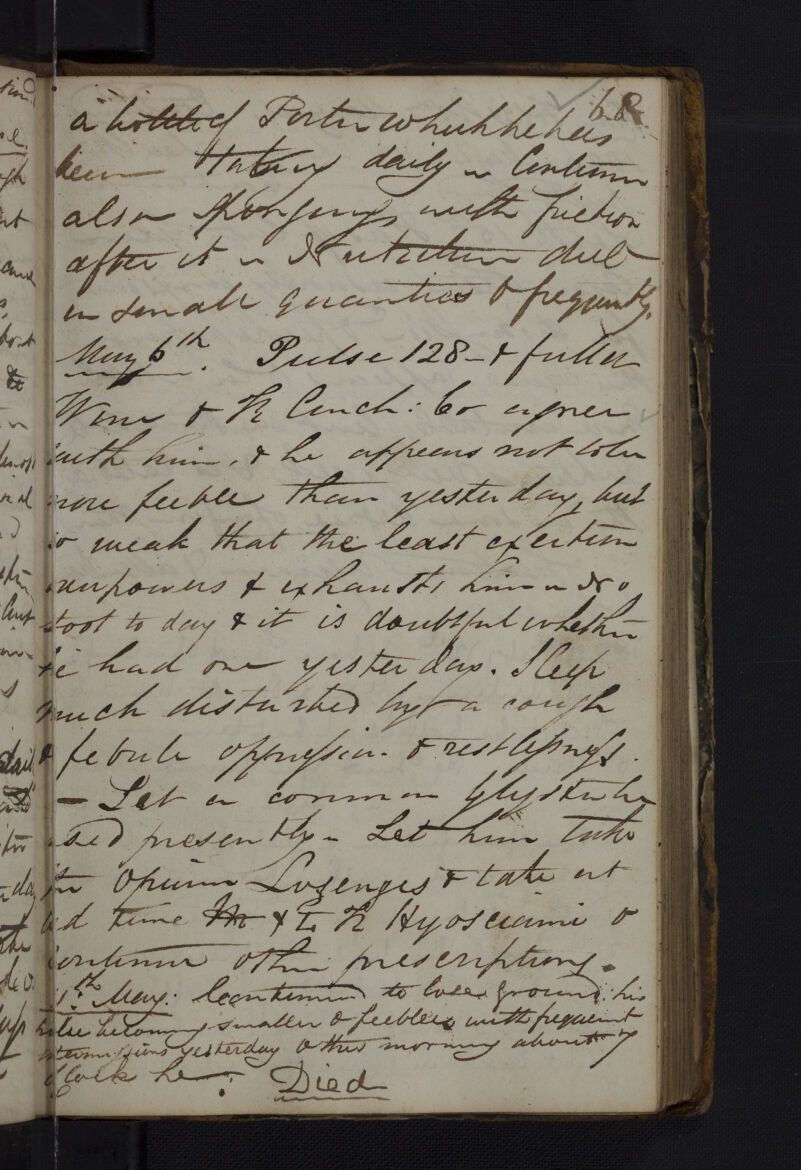 68
a bottle of Porter which he has
been taking daily ~ Continue
also Sponging with friction
after it ~ & nutritive diet
in small quantities & frequently.
May 6th. Pulse 128 - & fuller
Wine & Tr Cinch: Co agree
with him, & he appears not to be
more feeble than yesterday, but
so weak that the least exertion
overpowers & exhausts him ~ No
stool to day & it is doubtful whether
he had one yesterday. Sleep
much disturbed by a cough
& febrile oppression & restlessness.
- Let a common Glyster be
used presently ~ Let him take
the Opium Lozenges & take at
bed time Tr Hyosciami &
continue other prescriptions.
May: Continued to lose ground: his
pulse becoming smaller & feebler with frequent
intermissions yesterday & this morning about 7
o'Clock he: Died